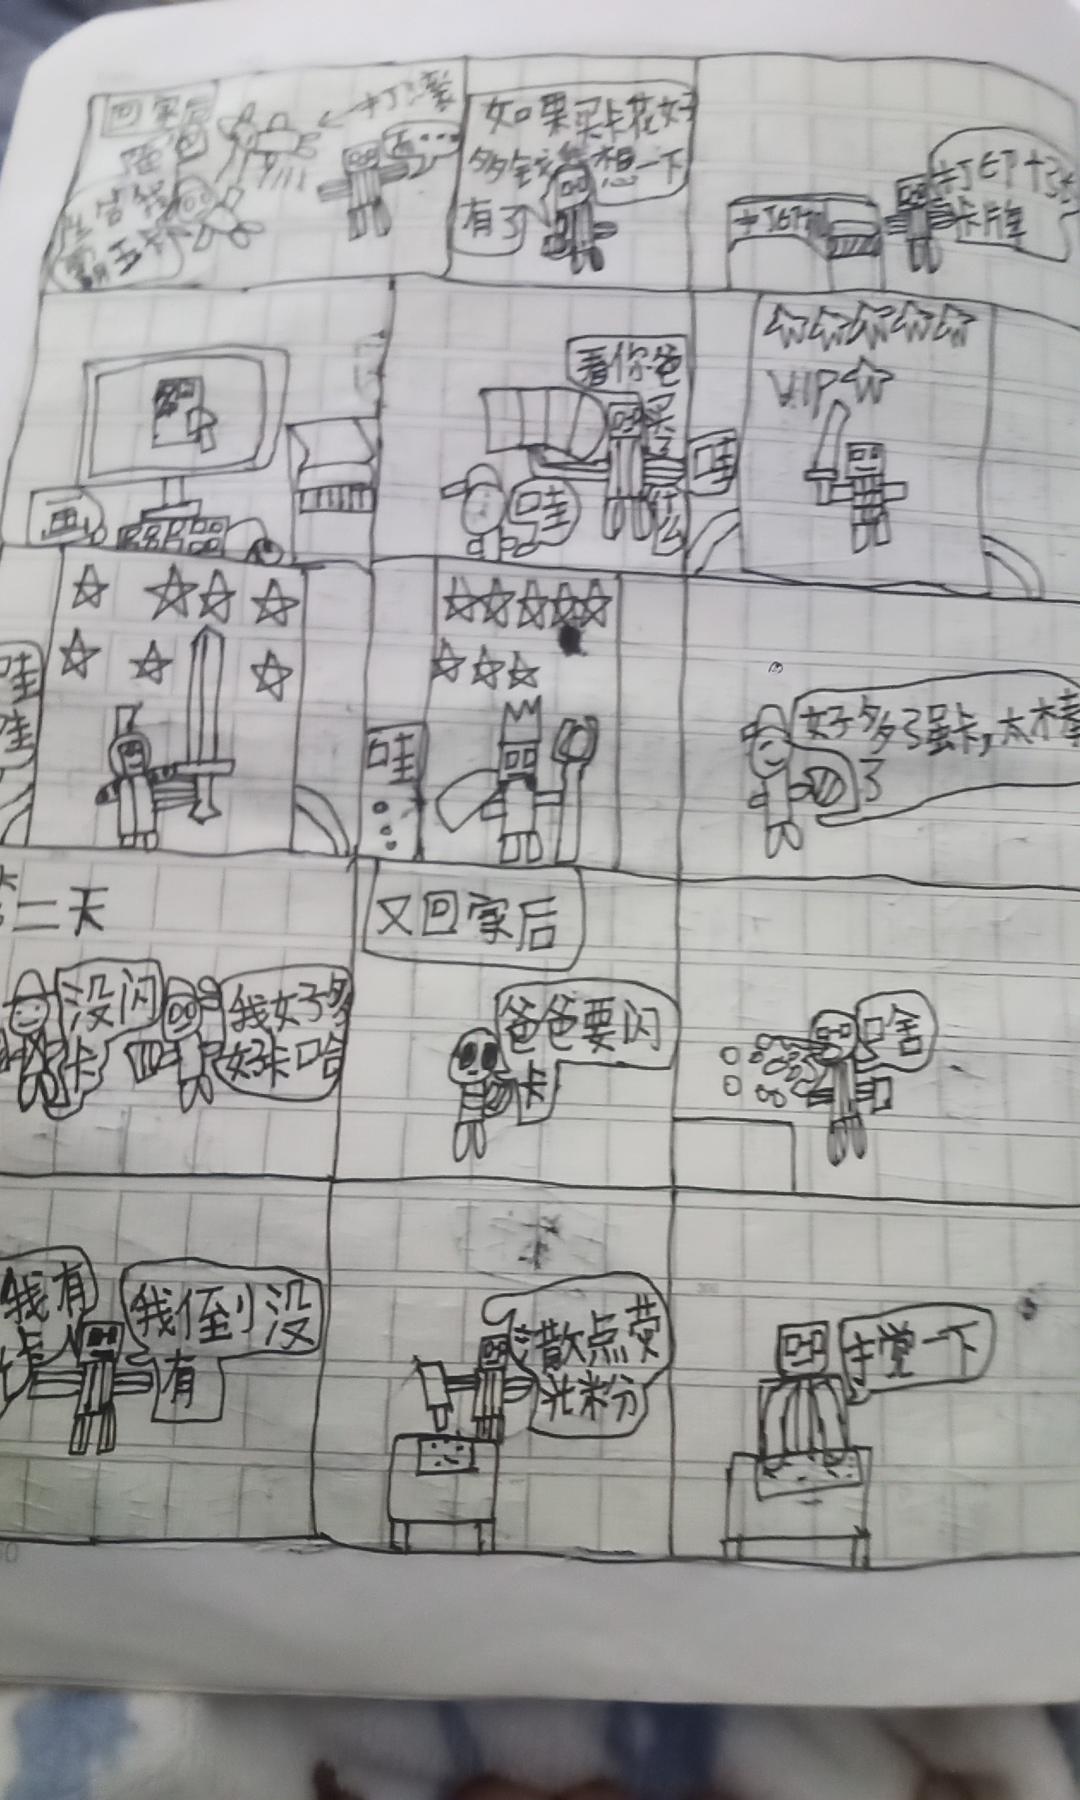 回家后
打滚
如果买卡花好
多钱
想一下
有了
打印
卡牌
画
看你爸
买了
什么
哇
哇
VIP
哇
哇
哇
好多了强卡,太棒
了
第二天
没闪
卡
我好多
好卡哈
又回家后
爸爸要闪
卡
啥
我有
我倒没
有
撒散点荧
光粉
一下